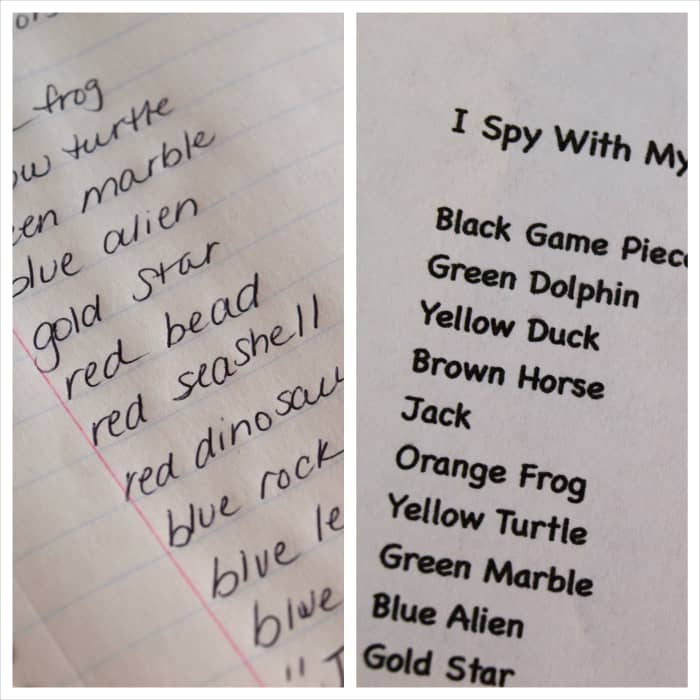 frog
turtle
marble
blue alien
gold star
red bead
red seashell
red
blue rock
blue
blue
I Spy With My
Black Game
Green Dolphin
Yellow Duck
Brown Horse
Jack
Orange Frog
Yellow Turtle
Green Marble
Blue Alien
Gold Star